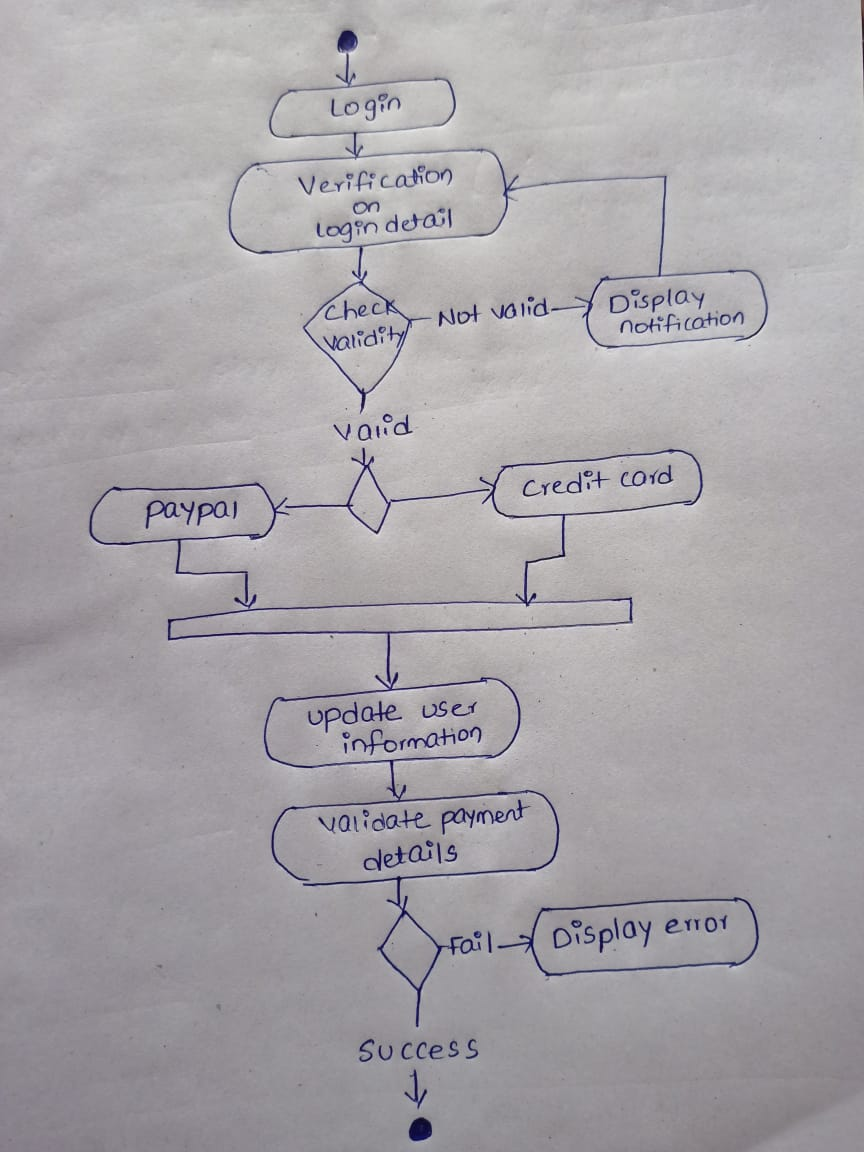 Login
Verification
on
Login detail
Check
validity
Not valid
Display
notification
valid
Paypal
Credit card
update user
information
validate payment
details
Fail
Display error
Success